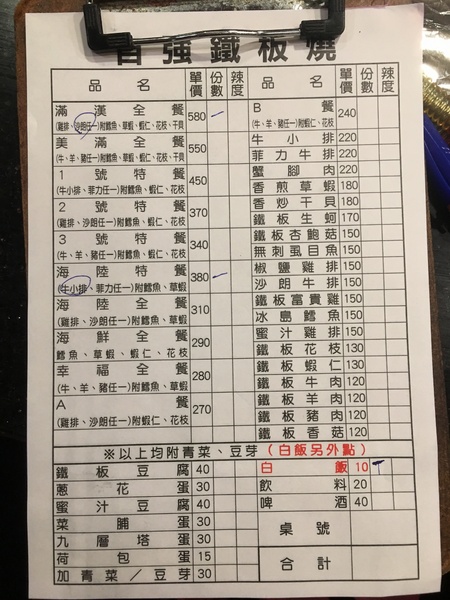 自強鐵板燒
品名 單價 份數 辣度
滿漢全餐 580
(雞排、沙朗任一)附鱈魚、草蝦、蝦仁、花枝、干貝
美滿全餐 550
(牛、羊、豬任一)附鱈魚、草蝦、蝦仁、花枝、干貝
1號特餐 450
(牛小排、菲力任一)附鱈魚、蝦仁、花枝
2號特餐 370
(雞排、沙朗任一)附鱈魚、蝦仁、花枝
3號特餐 340
(牛、羊、豬任一)附鱈魚、蝦仁、花枝
海陸特餐 380
(牛小排、菲力任一)附鱈魚、草蝦
海陸全餐 310
(雞排、沙朗任一)附鱈魚、草蝦
海鮮全餐 290
鱈魚、草蝦、蝦仁、花枝
幸福全餐 280
(牛、羊、豬任一)附鱈魚、草蝦
A餐 270
(雞排、沙朗任一)附蝦仁、花枝
品名 單價 份數 辣度
B餐 240
(牛、羊、豬任一)附蝦仁、花枝
牛小排 220
菲力牛排 220
蟹腳肉 220
香煎草蝦 180
香炒干貝 180
鐵板生蚵 170
鐵板杏鮑菇 150
無刺虱目魚 150
椒鹽雞排 150
沙朗牛排 150
鐵板富貴雞 150
冰島鱈魚 150
蜜汁雞排 150
鐵板花枝 130
鐵板蝦仁 130
鐵板牛肉 120
鐵板羊肉 120
鐵板豬肉 120
鐵板香菇 120
※以上均附青菜、豆芽(白飯另外點)
鐵板豆腐 40
蔥花蛋 30
蜜汁豆腐 40
菜脯蛋 30
九層塔蛋 30
荷包蛋 15
加青菜／豆芽 30
白飯 10
飲料 20
啤酒 40
桌號
合計